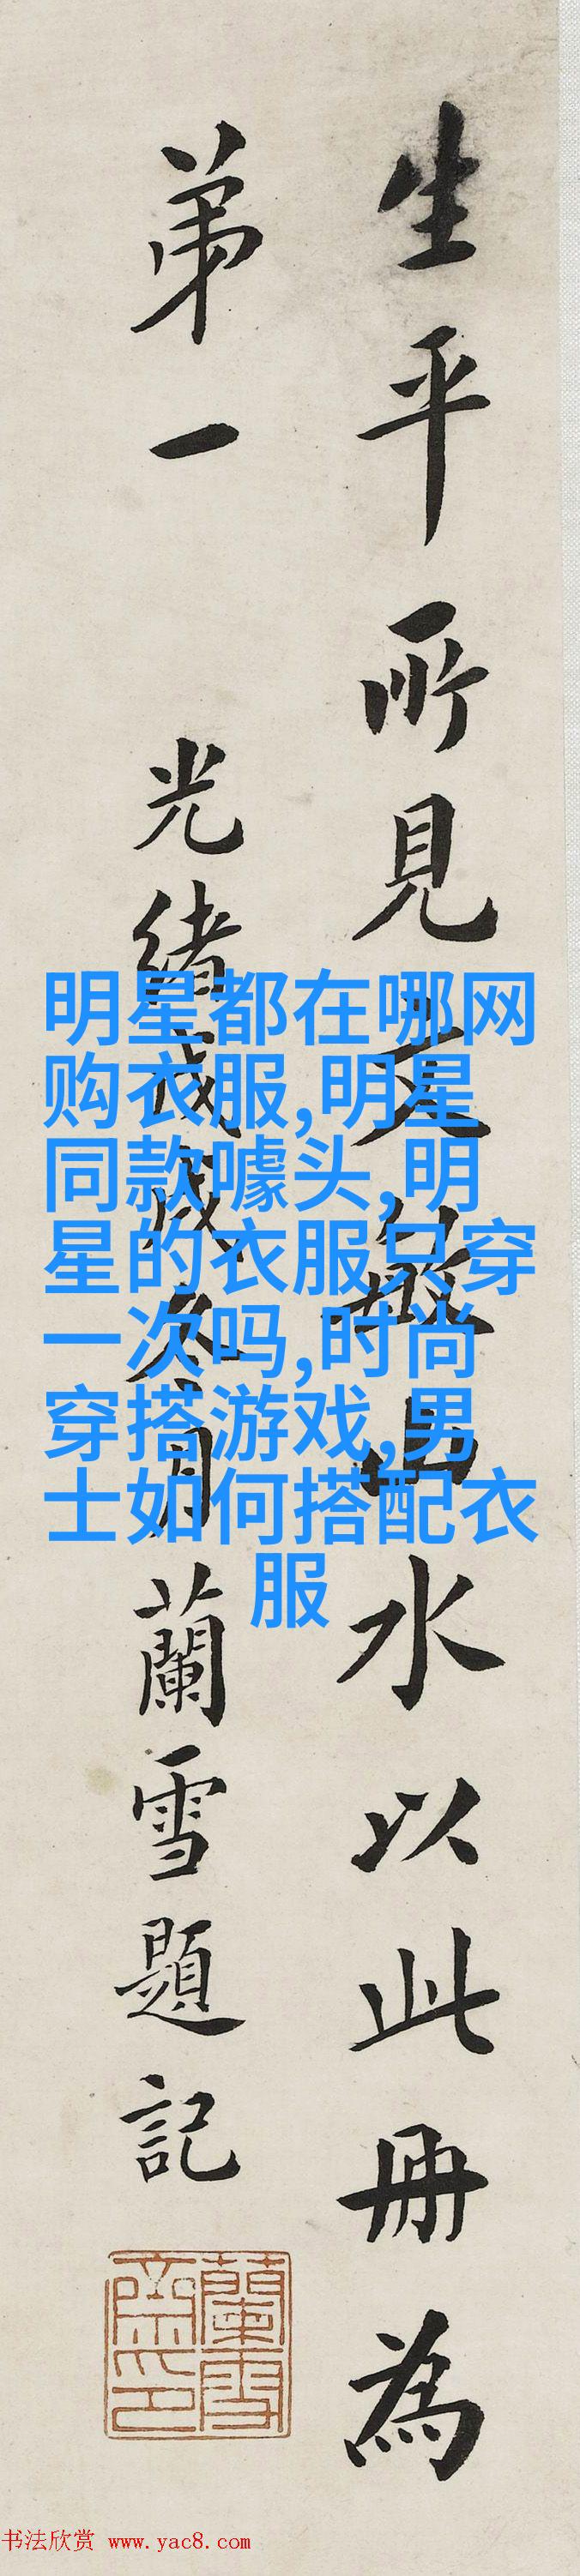 生平所見文敏山水以此冊為
弟一 光緒戊戌冬月蘭雪題記
蘭雪齋印
明星都在哪网
购衣服,明星
同款噱头,明
星的衣服只穿
一次吗,时尚
穿搭游戏,男
士如何搭配衣
服
书法欣赏 www.yac8.com